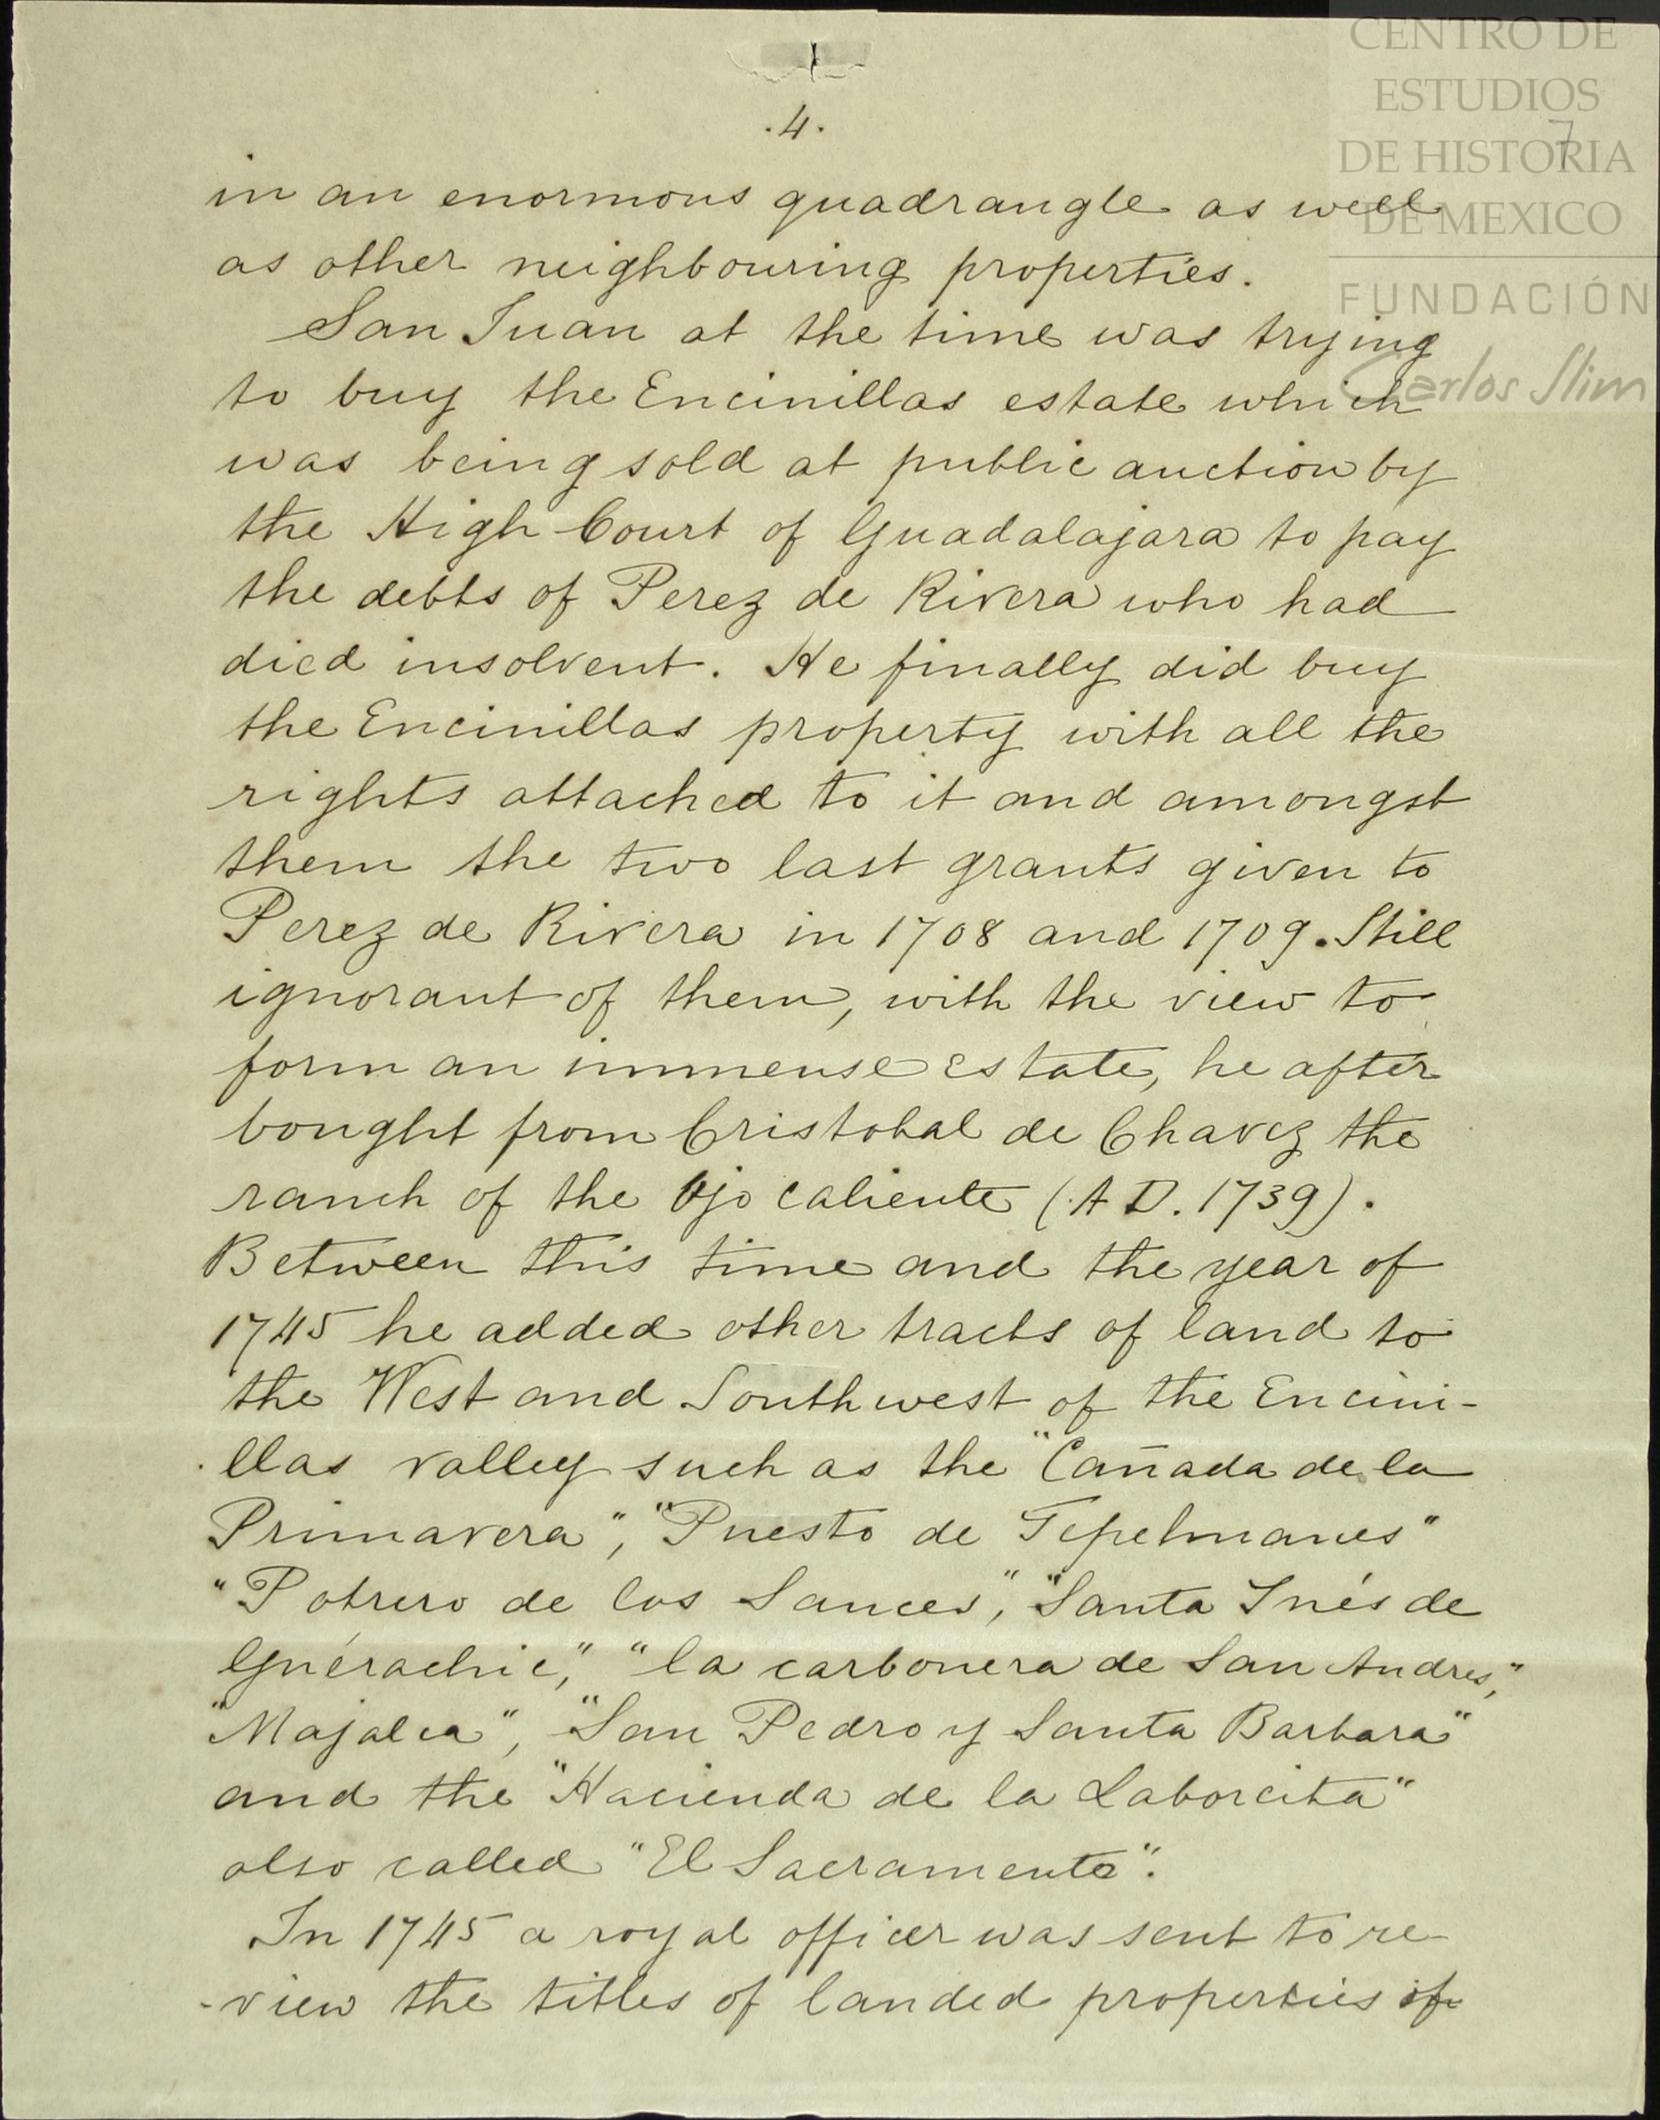 CENTRO DE
ESTUDIOS
DE HISTORIA
DE MEXICO
FUNDACIÓN
Carlos Slim
7
.4.
in an enormous quadrangle as well
as other neighbouring properties.
San Juan at the time was trying
to buy the Encinillas estate which
was being sold at public auction by
the High Court of Guadalajara to pay
the debts of Perez de Rivera who had
died insolvent. He finally did buy
the Encinillas property with all the
rights attached to it and amongst
them the two last grants given to
Perez de Rivera in 1708 and 1709. Still
ignorant of them, with the view to
form an immense estate, he after
bought from Cristobal de Chavez the
ranch of the Ojo caliente (A D. 1739).
Between this time and the year of
1745 he added other tracts of land to
the West and Southwest of the Encini-
llas valley such as the "Cañada de la
Primavera", "Puesto de Tepelmanes"
"Potrero de los Sauces", "Santa Inés de
Guérachic," "la carbonera de San Andres,"
"Majalca", "San Pedro y Santa Barbara"
and the "Hacienda de la Laborcita"
also called "El Sacramento".
In 1745 a royal officer was sent to re-
-view the titles of landed properties of